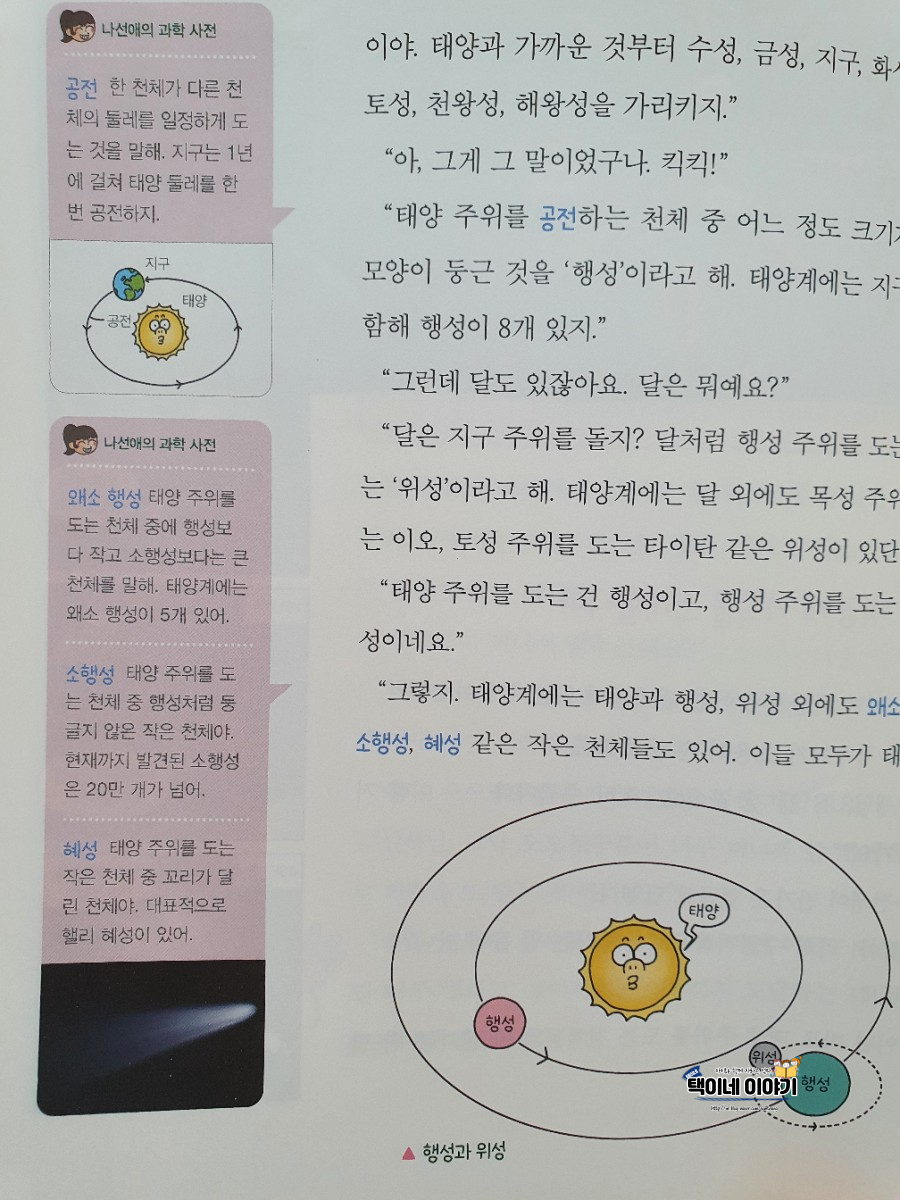 나선애의 과학 사전
공전 한 천체가 다른 천
체의 둘레를 일정하게 도
는 것을 말해. 지구는 1년
에 걸쳐 태양 둘레를 한
번 공전하지.
지구
태양
공전
나선애의 과학 사전
왜소 행성 태양 주위를
도는 천체 중에 행성보
다 작고 소행성보다는 큰
천체를 말해. 태양계에는
왜소 행성이 5개 있어.
소행성 태양 주위를 도
는 천체 중 행성처럼 둥
글지 않은 작은 천체야.
현재까지 발견된 소행성
은 20만 개가 넘어.
혜성 태양 주위를 도는
작은 천체 중 꼬리가 달
린 천체야. 대표적으로
핼리 혜성이 있어.
이야. 태양과 가까운 것부터 수성, 금성, 지구,
토성, 천왕성, 해왕성을 가리키지.”
“아, 그게 그 말이었구나. 킥킥!”
“태양 주위를 공전하는 천체 중 어느 정도
모양이 둥근 것을 ‘행성’이라고 해. 태양계에는
함해 행성이 8개 있지.”
“그런데 달도 있잖아요. 달은 뭐예요?”
“달은 지구 주위를 돌지? 달처럼 행성 주위를
는 ‘위성’이라고 해. 태양계에는 달 외에도 목성
는 이오, 토성 주위를 도는 타이탄 같은 위성이
“태양 주위를 도는 건 행성이고, 행성 주위를 도는
성이네요.”
“그렇지. 태양계에는 태양과 행성, 위성 외에도 왜소
소행성, 혜성 같은 작은 천체들도 있어. 이들 모두가
태양
행성
위성
행성
택이네 이야기
▲ 행성과 위성